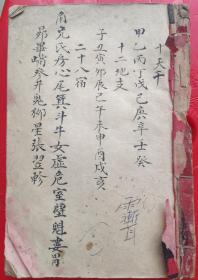 十天干
甲乙丙丁戊己庚辛壬癸
十二地支
子丑寅卯辰巳午未申酉戌亥
二十八宿
角亢氐房心尾箕斗牛女虚危室壁魁娄胃
昴畢嘴参井鬼柳星張翌軫